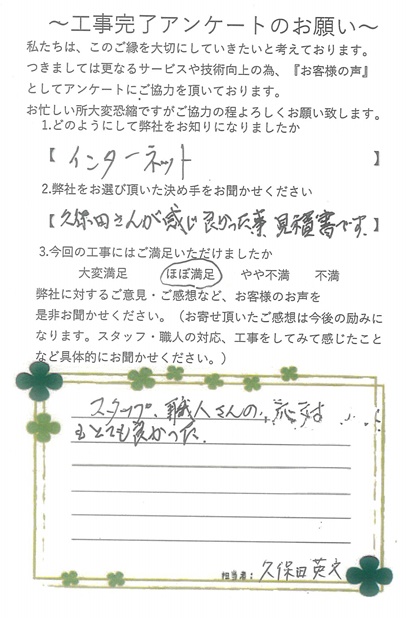 ～工事完了アンケートのお願い～
私たちは、このご縁を大切にしていきたいと考えております。
つきましては更なるサービスや技術向上の為、『お客様の声』
としてアンケートにご協力を頂いております。
お忙しい所大変恐縮ですがご協力の程よろしくお願い致します。
1.どのようにして弊社をお知りになりましたか
【 インターネット 】
2.弊社をお選び頂いた決め手をお聞かせください
【久保田さんが感じ良かった事 見積書です】
3.今回の工事にはご満足いただけましたか
大変満足 ほぼ満足 やや不満 不満
弊社に対するご意見・ご感想など、お客様のお声を
是非お聞かせください。（お寄せ頂いたご感想は今後の励みに
なります。スタッフ・職人の対応、工事をしてみて感じたこと
など具体的にお聞かせください。）
スタッフ、職人さんの、応対
もとても良かった.
担当者：久保田英文